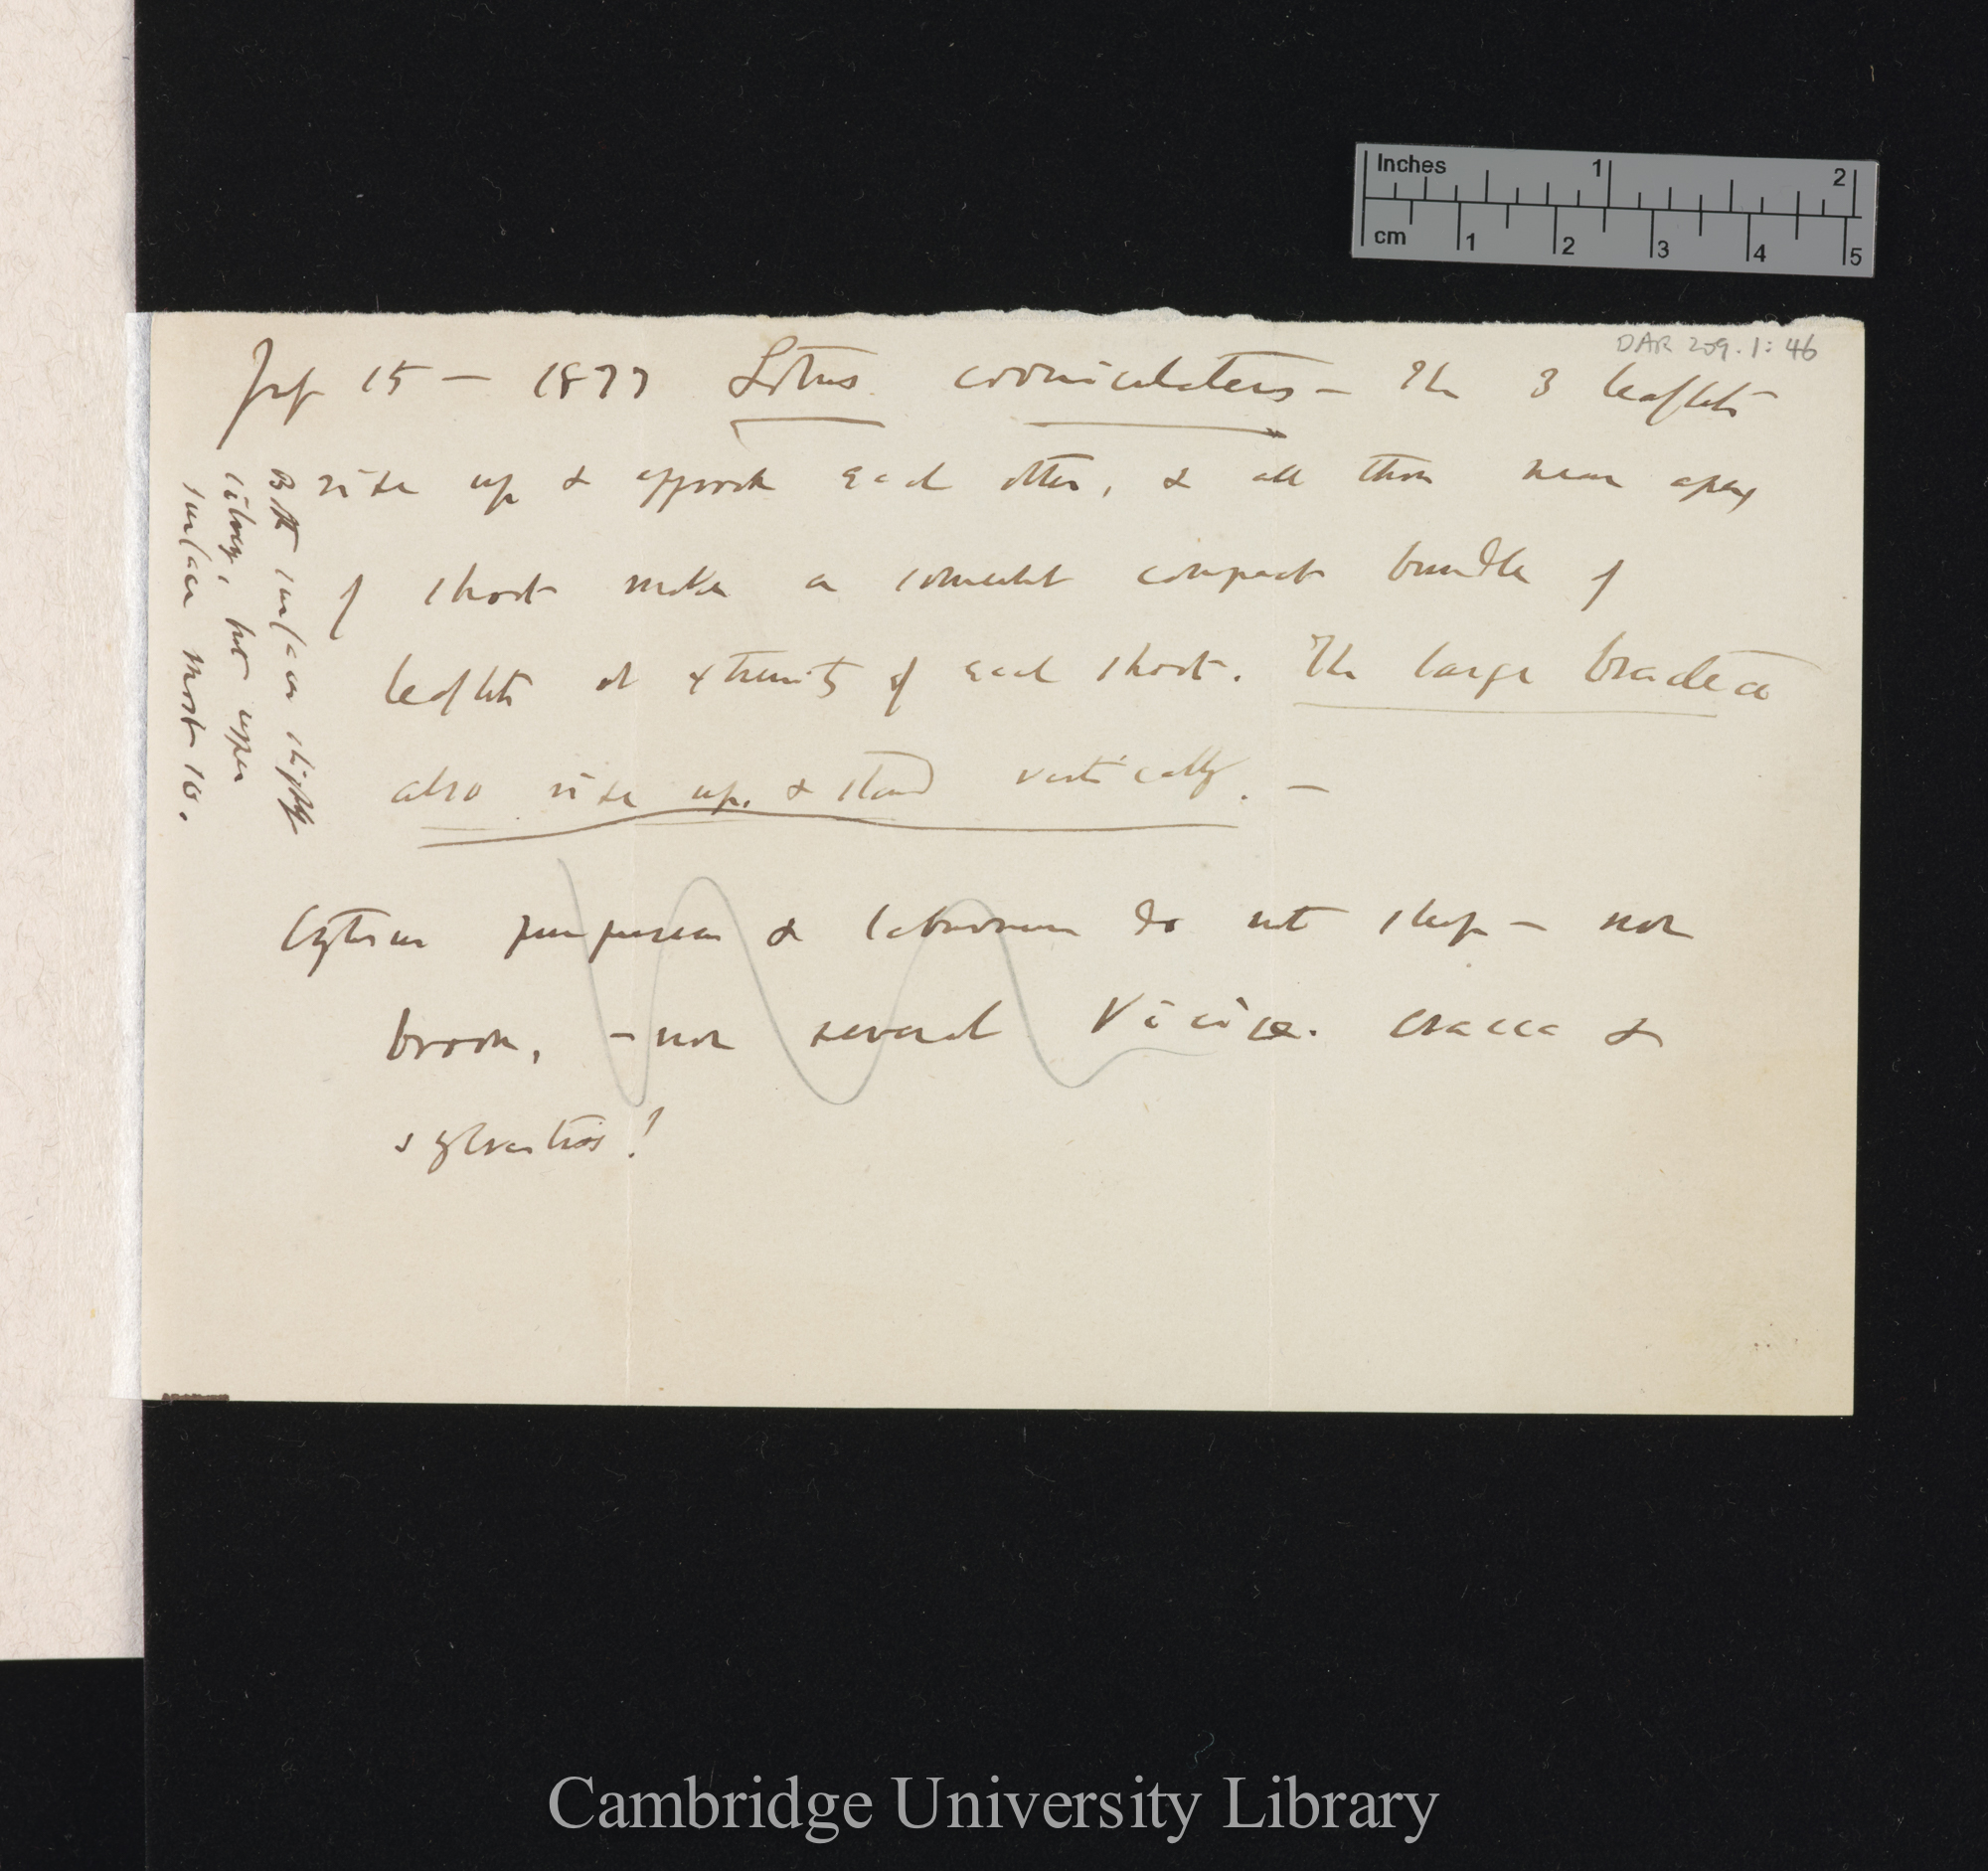 Inches 1 2
cm 1 2 3 4 5
DAR 209.1:46
15 — 1877 Lotus corniculatus — The 3 leaflets
rise up & approach each other, & all those near apex
of shoot make a somewhat compact bundle of
leaflets at extremity of each shoot. The large bracteæ
also rise up, & stand vertically. —
Both surfaces slightly
silvery, but upper
surface most so.
Cytisus purpureus & laburnum do not sleep — nor
broom, — nor several Viciæ. cracca &
sylvestris!
Cambridge University Library